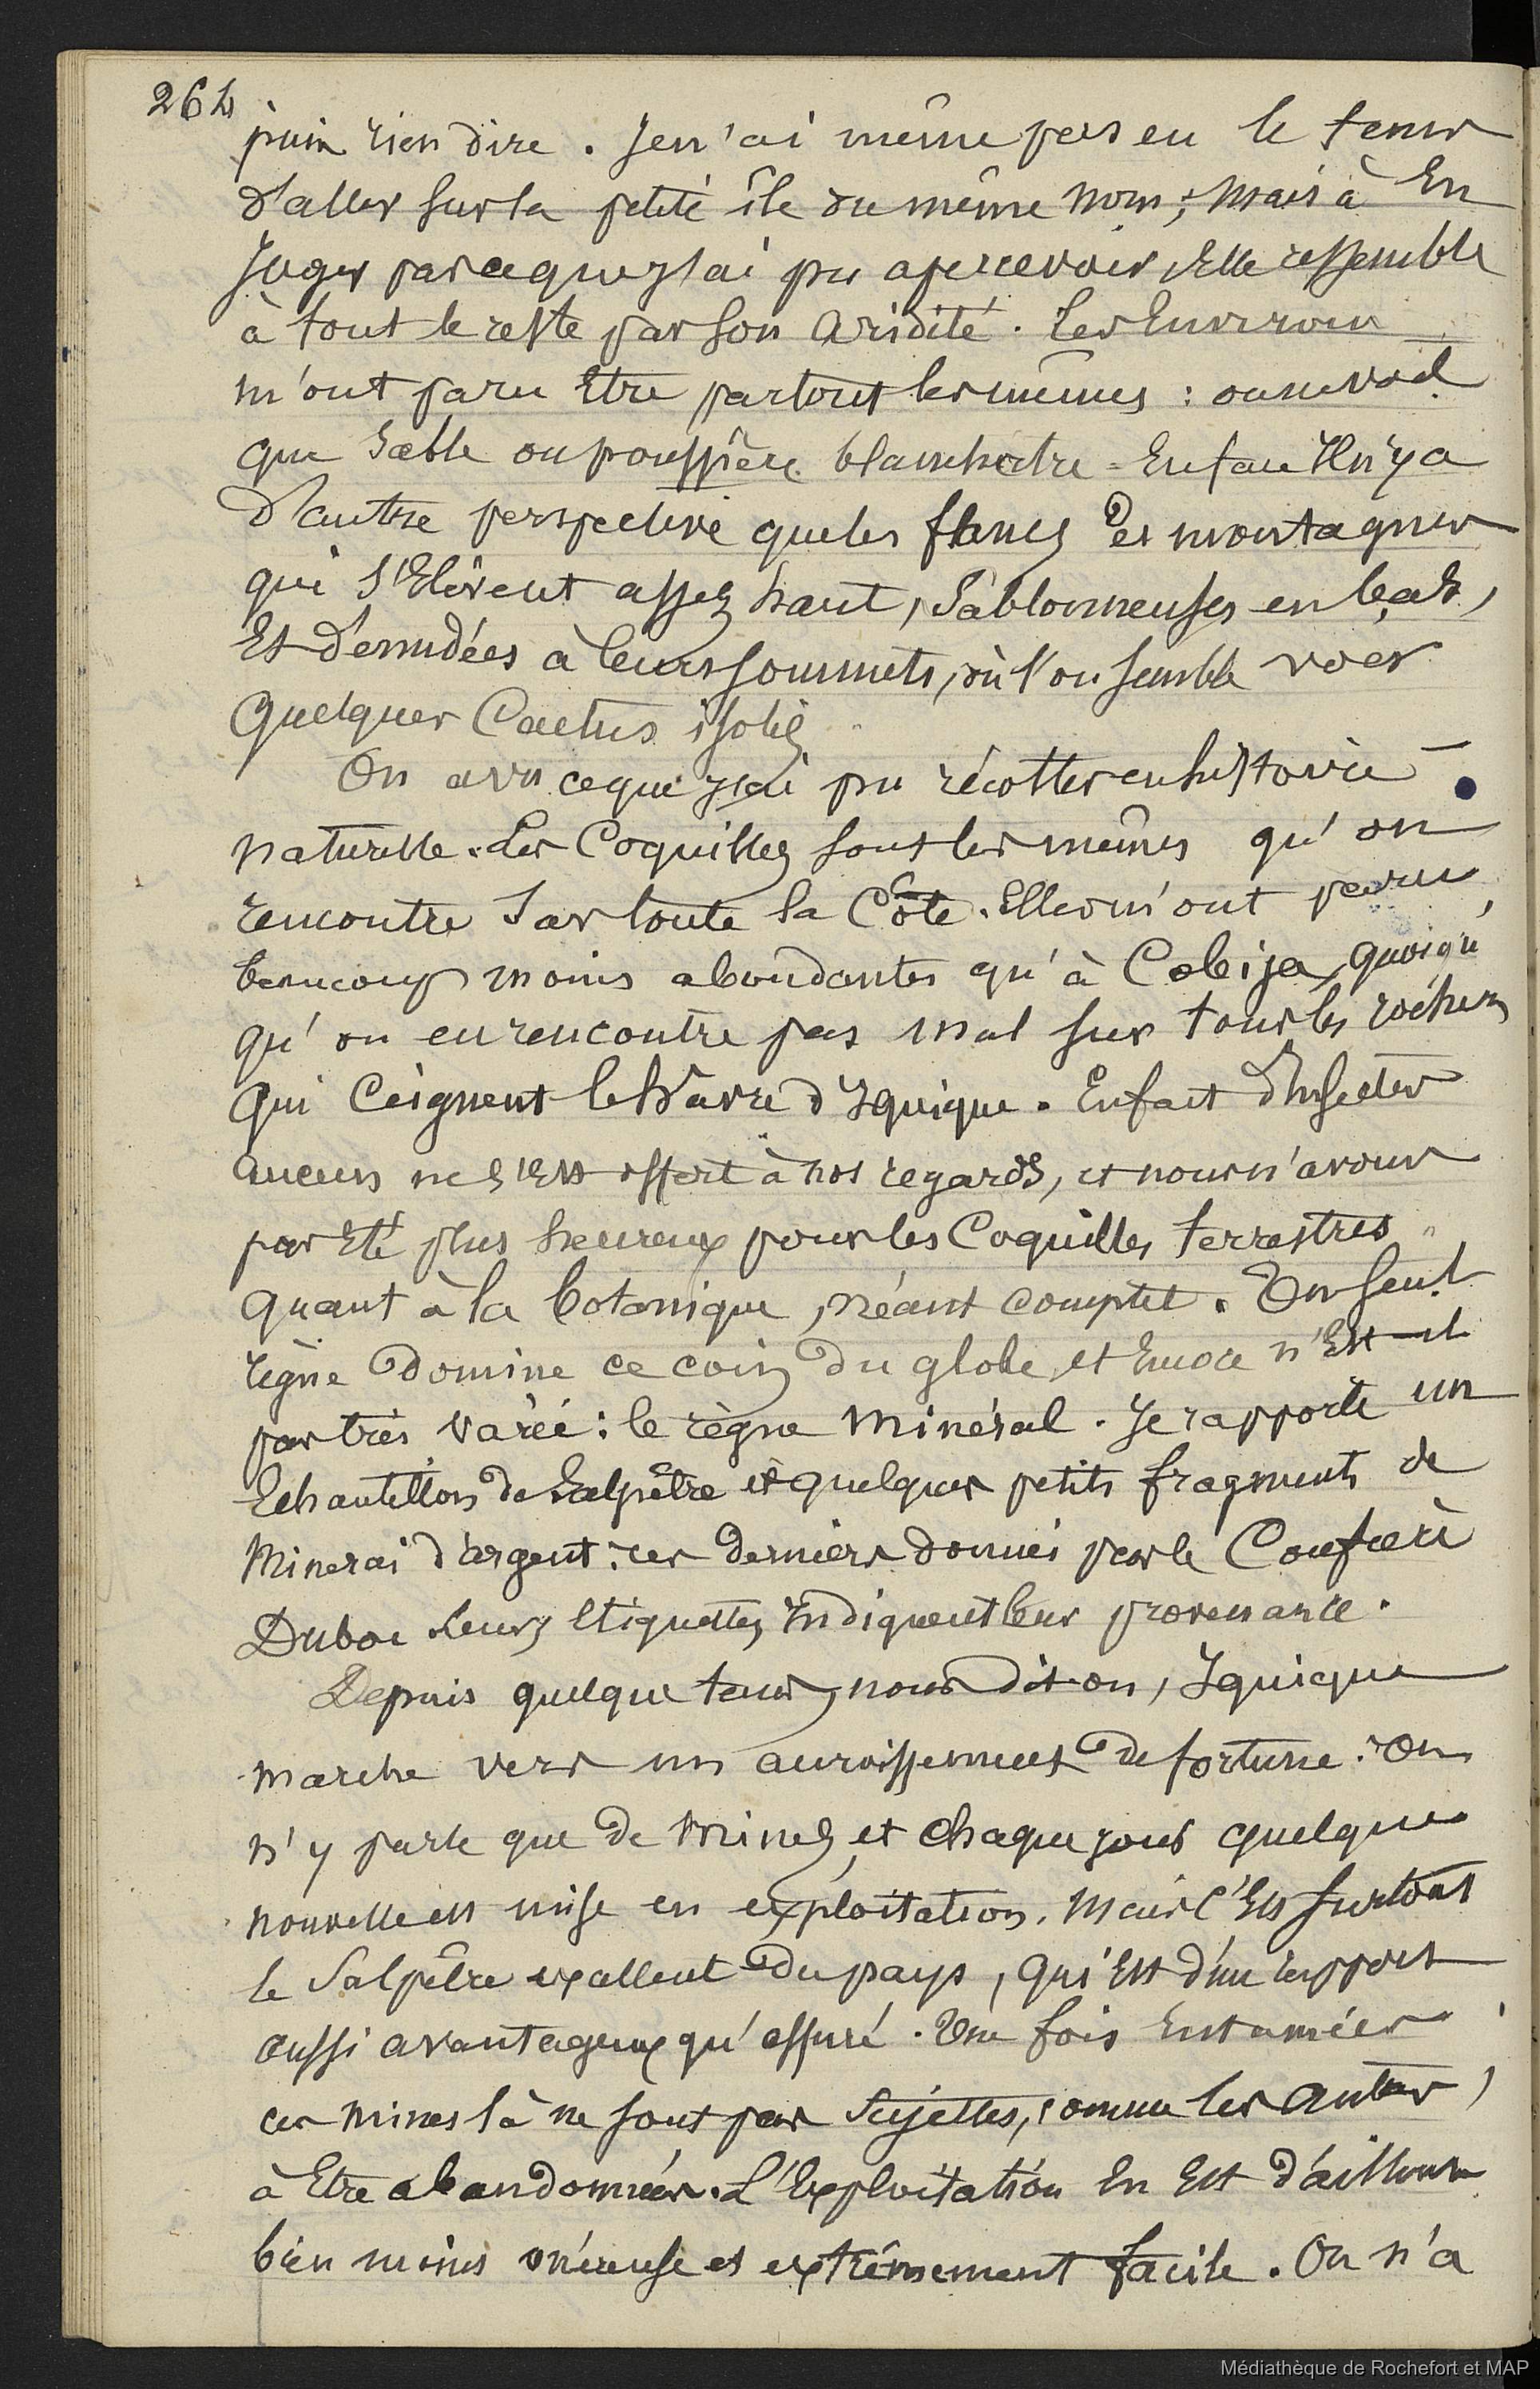 264
puis rien dire. Je n'ai même pas eu le tems
d'aller sur la petite île du même nom; mais à En
Juger par ce que j'ai pu apercevoir Elle ressemble
à tout le reste par son aridité. Les Environs
m'ont paru Etre partout les mêmes : on ne voit
que sable ou poussière blanchatre. En face Il n'y a
d'autre perspective que les flancs des montagnes
qui s'Elèvent assez haut, Sablonneuses en bas,
Et dénudées à leurs sommets, où l'on semble voir
Quelques Cactus isolés
On a vu ce que j'ai pu récolter en histoire
naturelle. Les Coquilles sont les mêmes qu'on
rencontre sur toute la Côte. Elles m'ont paru
beaucoup moins abondantes qu'à Cobija, quoiqu'
qu'on en rencontre pas mal sur tous les rochers
qui Ceignent le hâvre d'Iquique. En fait d'Insectes
aucun ne s'Est offert à nos regards, et nous n'avons
pas Eté plus heureux pour les Coquilles terrestres.
Quant à la botanique, néant complet. Un seul
règne domine ce coin du globe, et Encore n'Est-il
pas très varié : le règne minéral. Je rapporte un
Echantillon de Salpêtre et quelques petits fragments de
Minerai d'argent : ces derniers donnés par le Confrère
Duboc. Leurs Etiquettes Indiquent leur provenance.
Depuis quelque tems, nous dit-on, Iquique
marche vers un accroissement de fortune. On
n'y parle que de Mines, et chaque jour quelque
nouvelle est mise en exploitation. Mais c'Est surtout
le Salpêtre excellent du pays, qui Est d'un rapport
aussi avantageux qu'assuré. Une fois Entamées
ces mines là ne sont pas Sujettes, comme les autres,
à Etre abandonnées. L'Exploitation En Est d'ailleurs
bien moins onéreuse et extrêmement facile. On n'a
Médiathèque de Rochefort et MAP